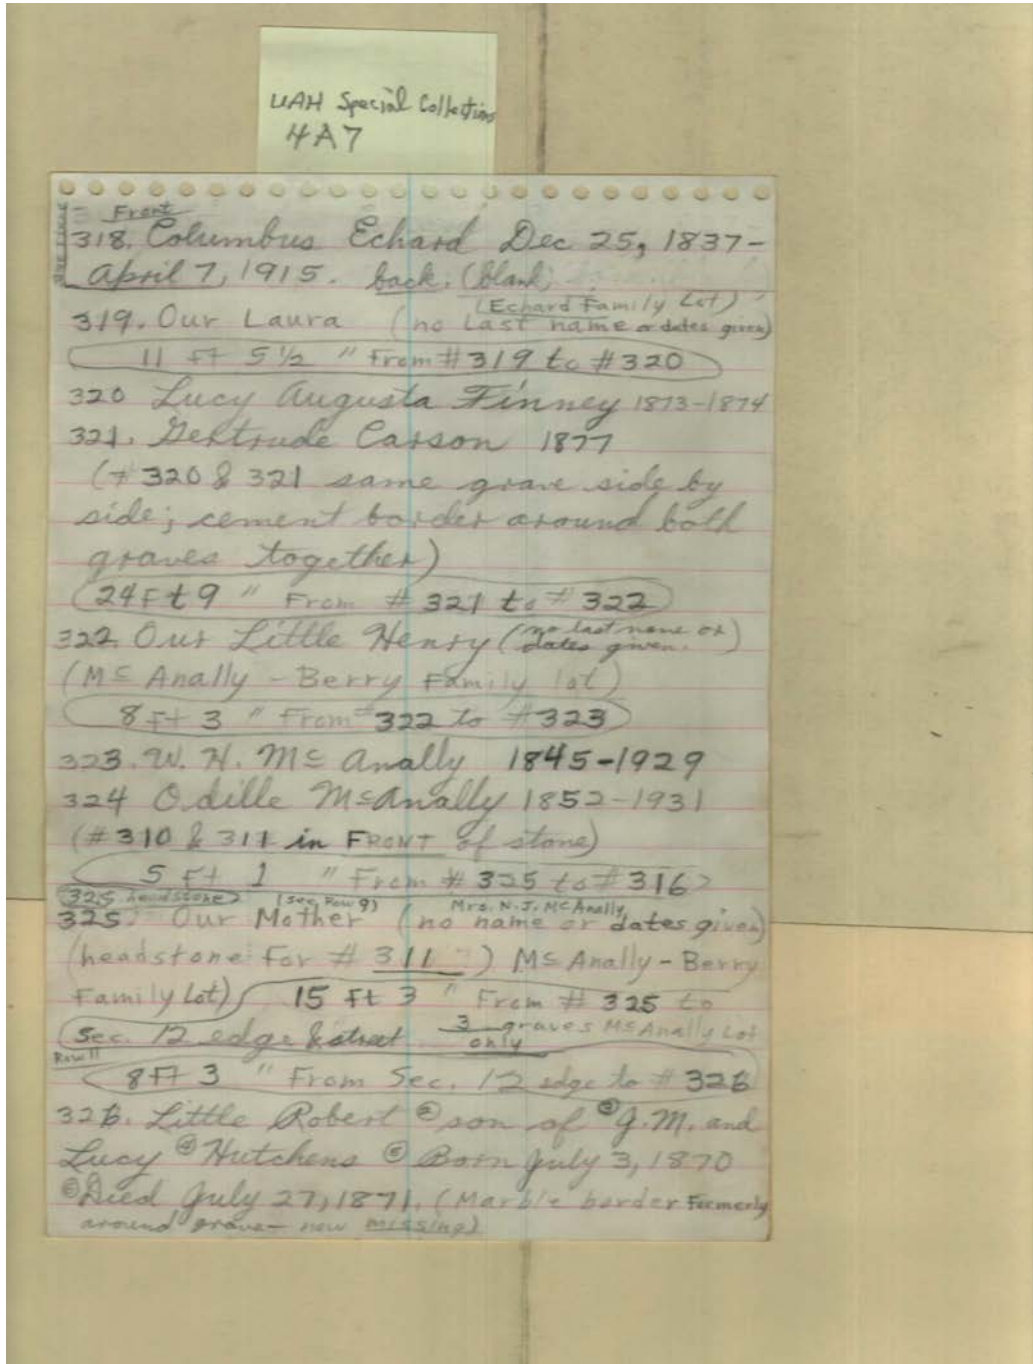 UAH Special Collections
4A7
Front
318. Columbus Echard Dec 25, 1837-
April 7, 1915. back: (blank)
(Echard Family Lot)
319. Our Laura (no last name or dates given)
11 ft 5 1/2 " From #319 to #320
320 Lucy Augusta Finney 1873-1874
321. Gertrude Carson 1877
(#320 & 321 same grave side by
side; cement border around both
graves together)
24 Ft 9 " From # 321 to # 322
322. Our Little Henry (no last name or
dates given.)
(McAnally - Berry Family lot)
8 ft 3 " From #322 to #323
323. W. H. McAnally 1845-1929
324 Odille McAnally 1852-1931
(#310 & 311 in FRONT of stone)
5 Ft 1 " From # 325 to # 316
325 headstone (see Row 9) Mrs. N.J. McAnally
325. Our Mother (no name or dates given)
(headstone for # 311 ) McAnally - Berry
Family Lot) 15 Ft 3 " From # 325 to
Sec. 12 edge & street 3 graves McAnally Lot
only
Row 11
8 Ft 3 " From Sec. 12 edge to # 326
326. Little Robert ② son of ③ J.M. and
Lucy ④ Hutchens ⑤ Born July 3, 1870
⑥ Died July 27, 1871. (Marble border Formerly
around grave - now missing)